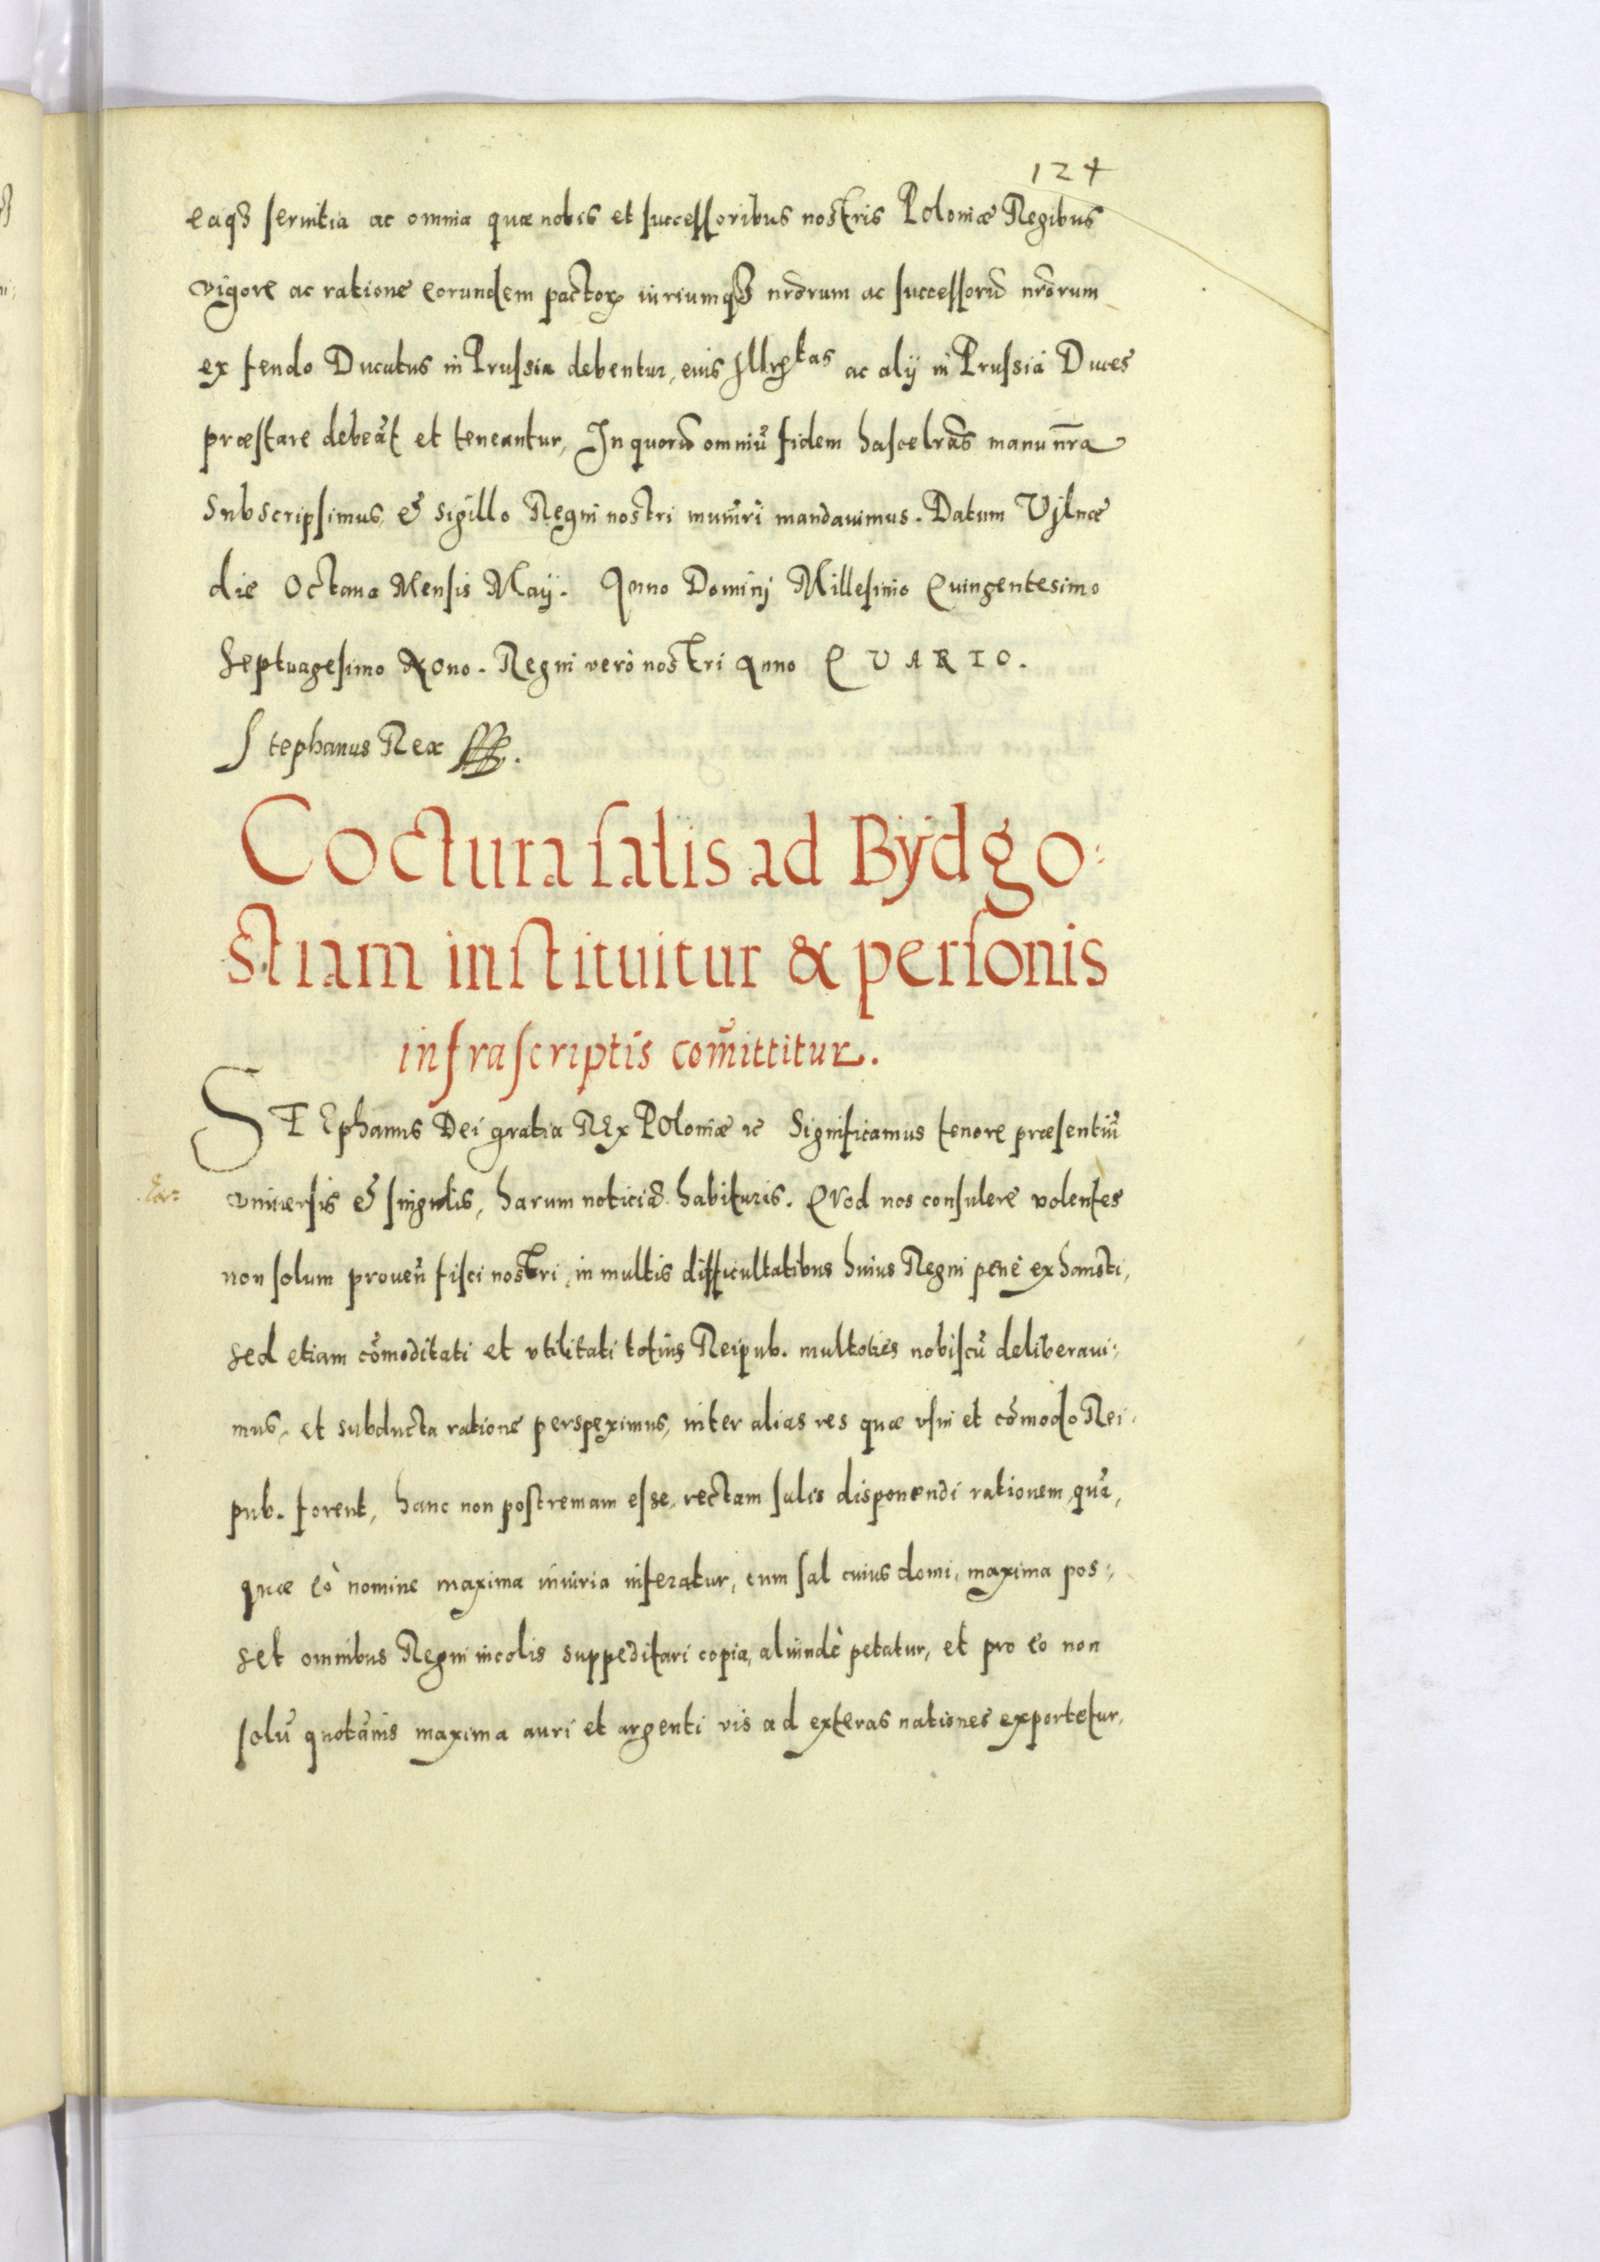 124
eaqȝ seruitia ac omnia quæ nobis et successoribus nostris Poloniæ Regibus
vigore ac ratione eorundem pactoꝝ iuriumqȝ nr̄orum ac successorū nr̄orum
ex feudo Ducatus in Prussia debentur, eius Illr̄tas ac alij in Prussia Duces
præstare debeāt et teneantur, In quorū omniū fidem hasce lr̄as manu nr̄a
subscripsimus, & sigillo Regni nostri mun̄iri mandauimus. Datum Vilnæ
die Octaua Mensis Maij. Anno Domini Millesimo Quingentesimo
Septuagesimo Nono. Regni verò nostri Anno QVARTO.
Stephanus Rex
Coctura salis ad Bydgo:
stiam instituitur & personis
infrascriptis com̄ittitur.
STEphanus Dei gratia REx POloniæ ꝛc Significamus tenore præsentiū
vniuersis & singulis, harum noticiā habituris. QVod nos consulere volentes
non solum prouen̄ fisci nostri, in multis difficultatibus huius Regni penè exhausti,
sed etiam cōmoditati et vtilitati totius Reipub. multoties nobiscū deliberaui:
mus, et subducta ratione perspeximus, inter alias res quæ vsui et cōmodo Rei:
pub. forent, hanc non postremam esse, rectam salis disponendi rationem, quā,
quæ eò nomine maxima iniuria inferatur, cum sal cuius domi, maxima pos:
set omnibus Regni incolis suppeditari copia, aliundè petatur, et pro eo non
solū quotānis maxima auri et argenti vis ad exteras nationes exportetur,